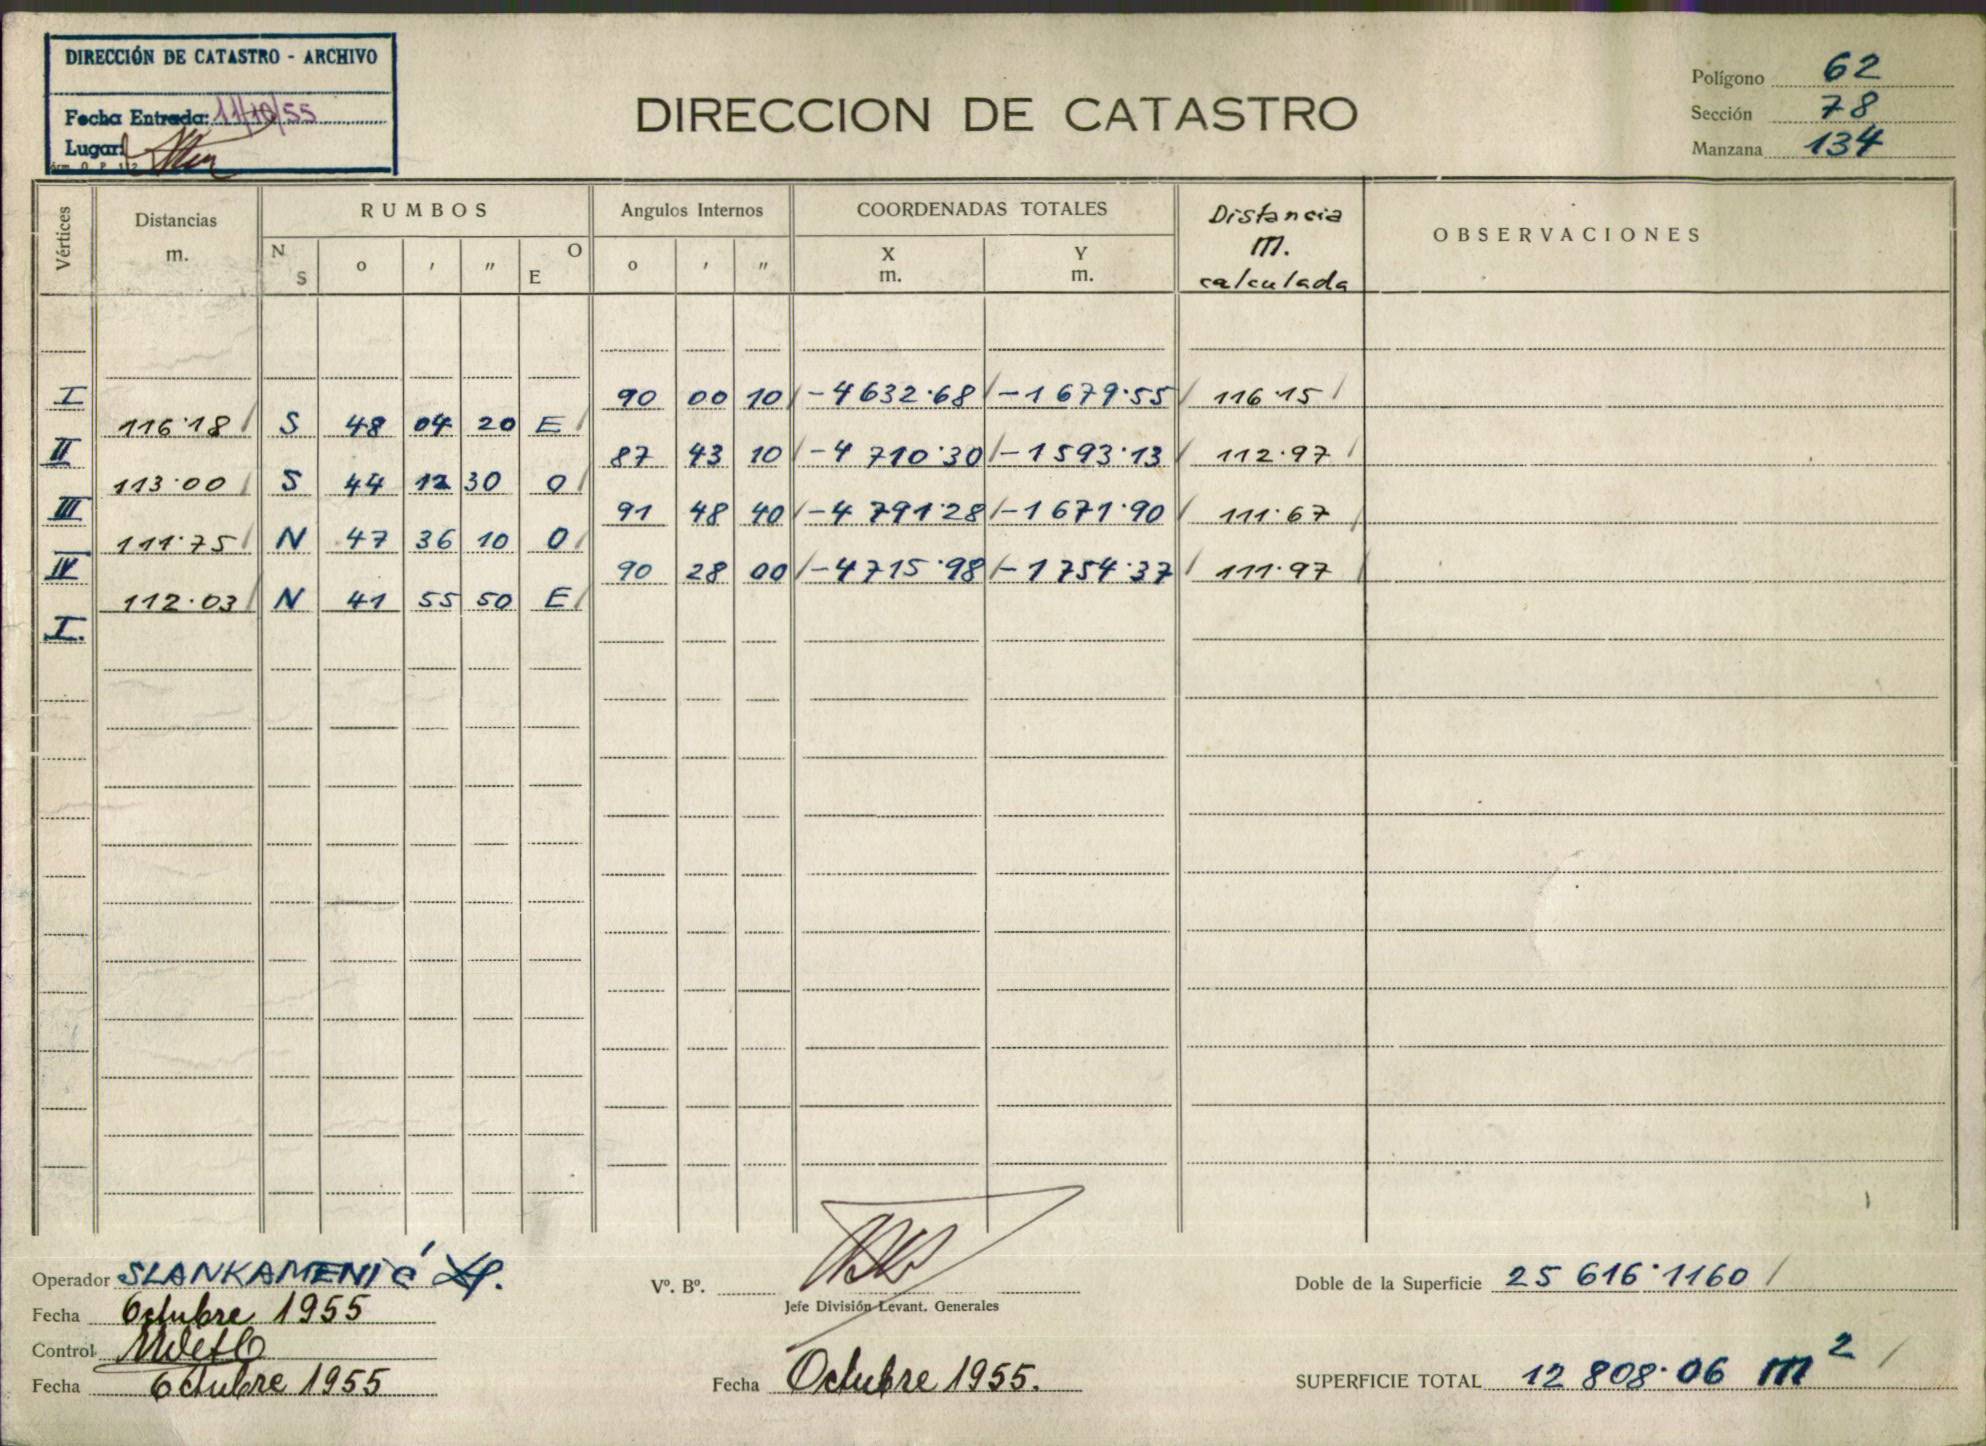 DIRECCIÓN DE CATASTRO - ARCHIVO
Fecha Entrada: 11/10/55
Lugar:
DIRECCION DE CATASTRO
Polígono 62
Sección 78
Manzana 134
Vértices
Distancias
m.
RUMBOS
N S
o ′ ″
O E
Angulos Internos
o ′ ″
COORDENADAS TOTALES
X m.
Y m.
Distancia
m.
calculada
OBSERVACIONES
I 90 00 10 -4632·68 -1679·55 116·15
116·18 S 48 04 20 E
II 87 43 10 -4 710·30 -1593·13 112·97
113·00 S 44 12 30 O
III 91 48 40 -4 791·28 -1671·90 111·67
111·75 N 47 36 10 O
IV 90 28 00 -4715·98 -1754·37 111·97
112·03 N 41 55 50 E
I.
Operador SLANKAMENIĆ
Fecha Octubre 1955
Control
Fecha Octubre 1955
Vº. Bº.
Jefe División Levant. Generales
Fecha Octubre 1955.
Doble de la Superficie 25 616·1160
SUPERFICIE TOTAL 12 808·06 m²